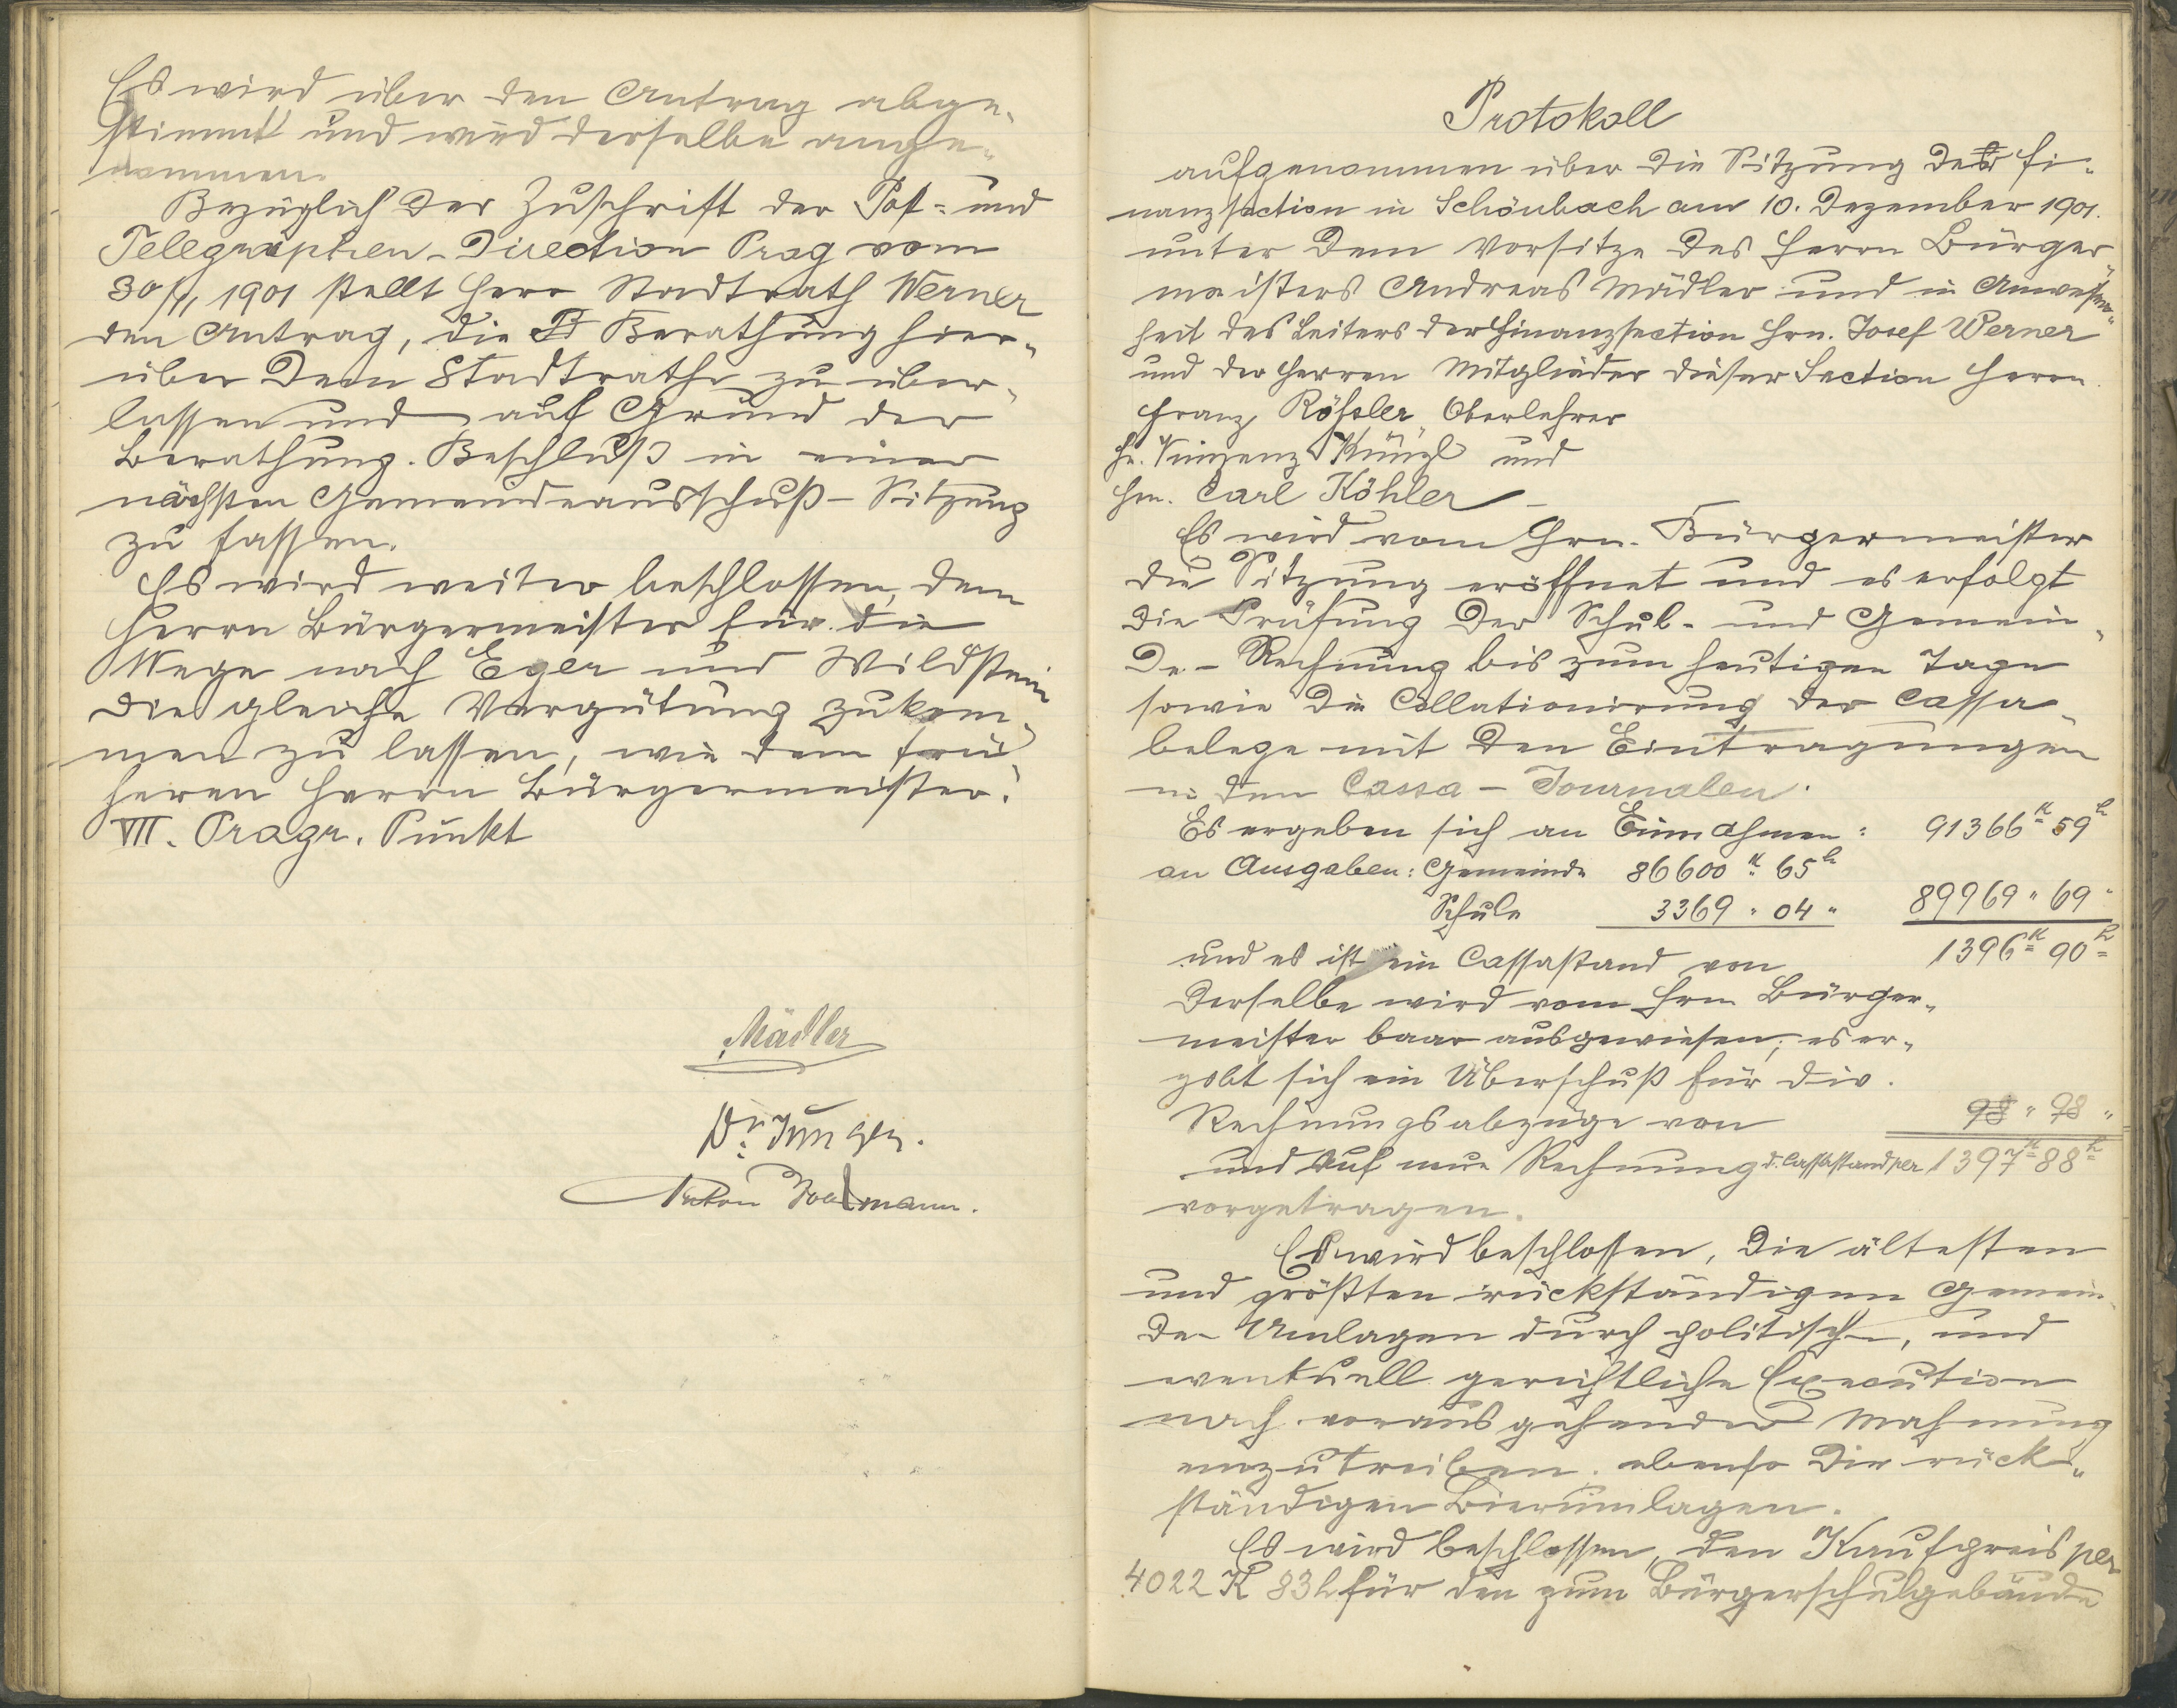 Es wird über den Antrag abge-
stimmt und wird derselbe ange-
nommen.
Bezüglich der Zuschrift der Post- und
Telegraphen-Direction Prag vom
30/11 1901 stellt Herr Stadtrath Werner
den Antrag, die Berathung hier-
über dem Stadtrathe zu über-
lassen und auf Grund der
Berathung. Beschluß in einer
nächsten Gemeindeausschuß-Sitzung
zu fassen.
Es wird weiter beschlossen, dem
Herrn Bürgermeister für die
Wege nach Eger und Wildstein
die gleiche Vergütung zukom-
men zu lassen, wie dem frü-
heren Herrn Bürgermeister.
VII. Progr. Punkt
Mädler
Dr. Junger.
Anton
Protokoll
aufgenommen über die Sitzung der Fi-
nanzsection in Schönbach am 10. Dezember 1901.
unter dem Vorsitze des Herrn Bürger-
meisters Andreas Mädler und in Anwesen-
heit des Leiters der Finanzsection Hrn. Josef Werner
und der Herren Mitglieder dieser Section Herrn
Franz Rößler, Oberlehrer
Hr. Vinzenz Künzl und
Hrn. Carl Köhler –
Es wird vom Hrn. Bürgermeister
die Sitzung eröffnet und es erfolgt
die Prüfung der Schul- und Gemein-
de-Rechnung bis zum heutigen Tage
sowie die Collationirung der Cassa-
belege mit den Eintragungen
in den Cassa-Journalen.
Es ergeben sich an Einnahmen: 91366 K 59 h
an Ausgaben: Gemeinde 86600 K 65 h
Schule 3369 " 04 " 89969 " 69 "
und es ist ein Cassastand von 1396 K 90 h
Derselbe wird vom Hrn Bürger-
meister baar ausgewiesen, es er-
gibt sich ein Überschuß für div.
Rechnungsabzüge von " 98 "
und auf neue Rechnung d. Cassastand per 1397 K 88 h
vorgetragen.
Es wird beschlossen, die ältesten
und größten rückständigen Gemein-
de-Umlagen durch politische, und
eventuell gerichtliche Execution
nach vorausgehender Mahnung
einzutreiben. ebenso die rück-
ständigen Bierumlagen.
Es wird beschlossen, den Kaufpreis per
4022 K 83 h für den zum Bürgerschulgebäude